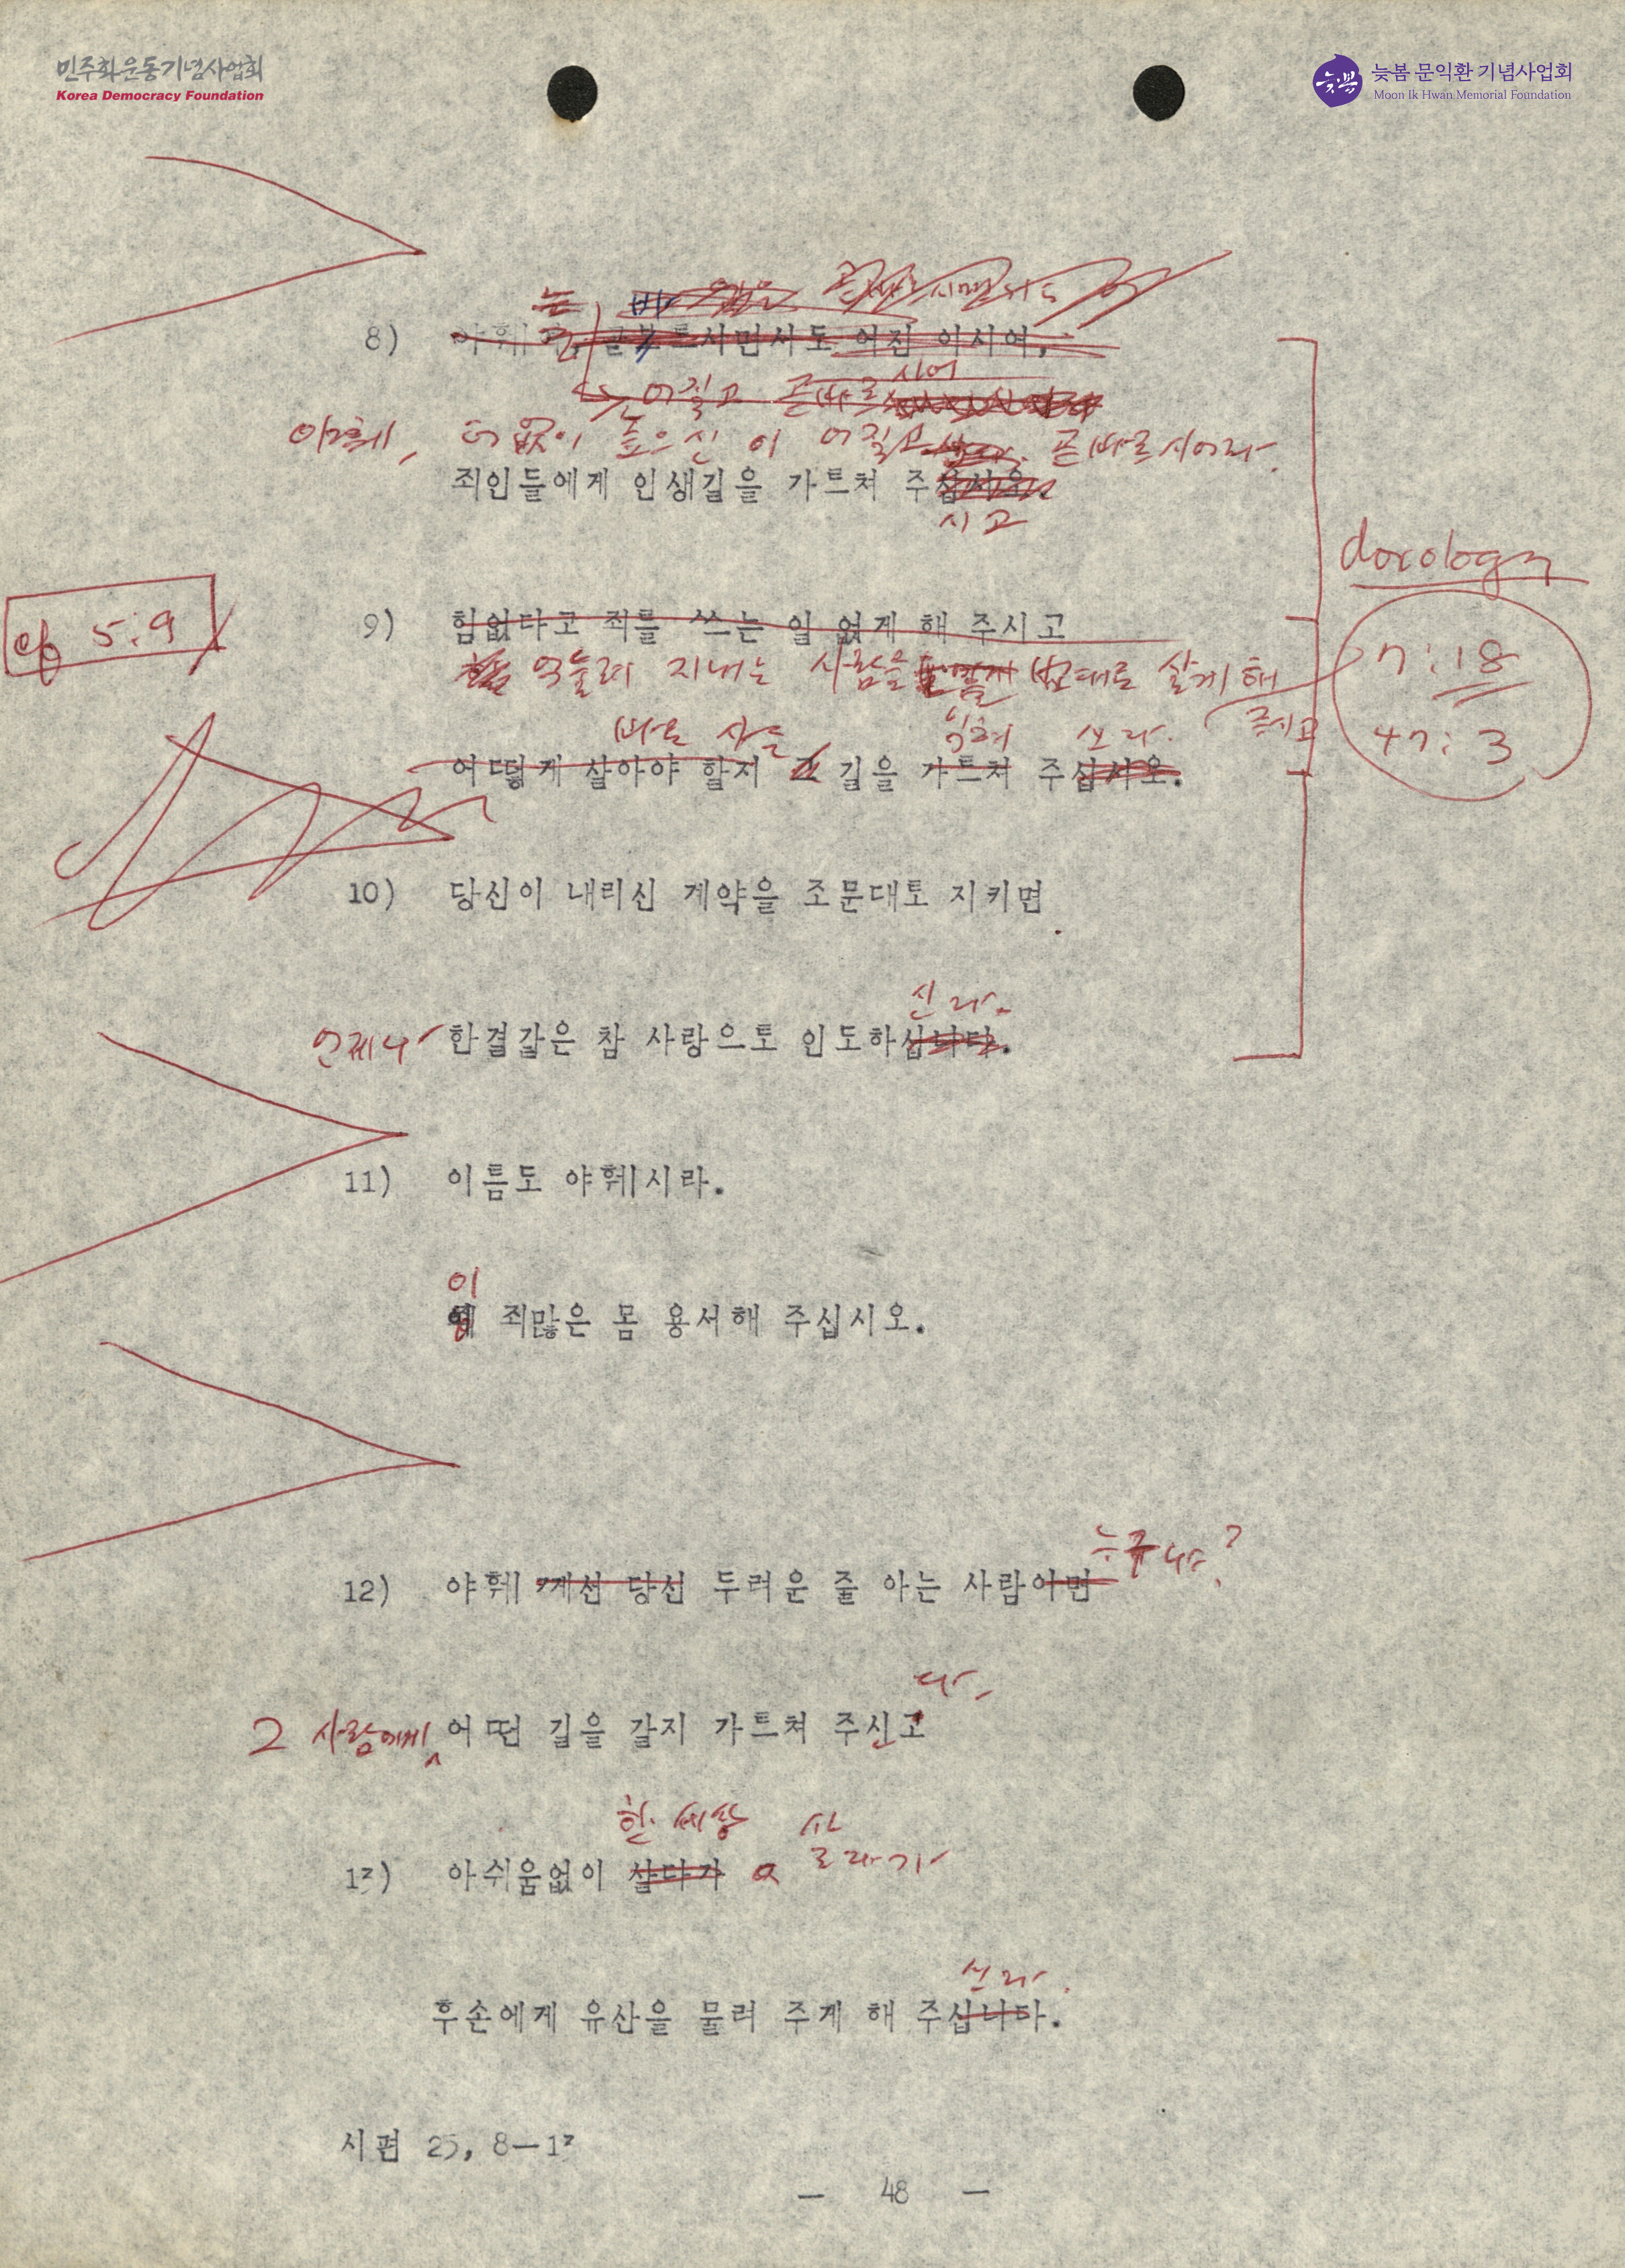 민주화운동기념사업회
Korea Democracy Foundation
늦봄
늦봄 문익환 기념사업회
Moon Ik Hwan Memorial Foundation
비
8) 야훼 시면서도 어진 이시여,
시어
어질고 곧바르
야훼, 더없이 높으신 이 어질고 곧바르시어라.
죄인들에게 인생길을 가트쳐 주십시오.
시고
doxology
cf 5:9
9) 힘없다고 죄를 쓰는 일 없게 해 주시고
억눌려 지내는 사람을 법대로 살게 해
주시고
7:18
47:3
바로 사는 익혀
어떻게 살아야 할지 그 길을 가트쳐 주십시오.
10) 당신이 내리신 계약을 조문대토 지키면
신라.
언제나 한결같은 참 사랑으토 인도하십니다.
11) 이름도 야훼시라.
이
죄많은 몸 용서해 주십시오.
누구냐?
12) 야훼 께선 당신 두려운 줄 아는 사람이면
다.
그 사람에게 어떤 길을 갈지 가트쳐 주신고
한 세상 살
르다가
13) 아쉬움없이 살다가
신라.
후손에게 유산을 물려 주게 해 주십니다.
시편 25, 8—13
— 48 —